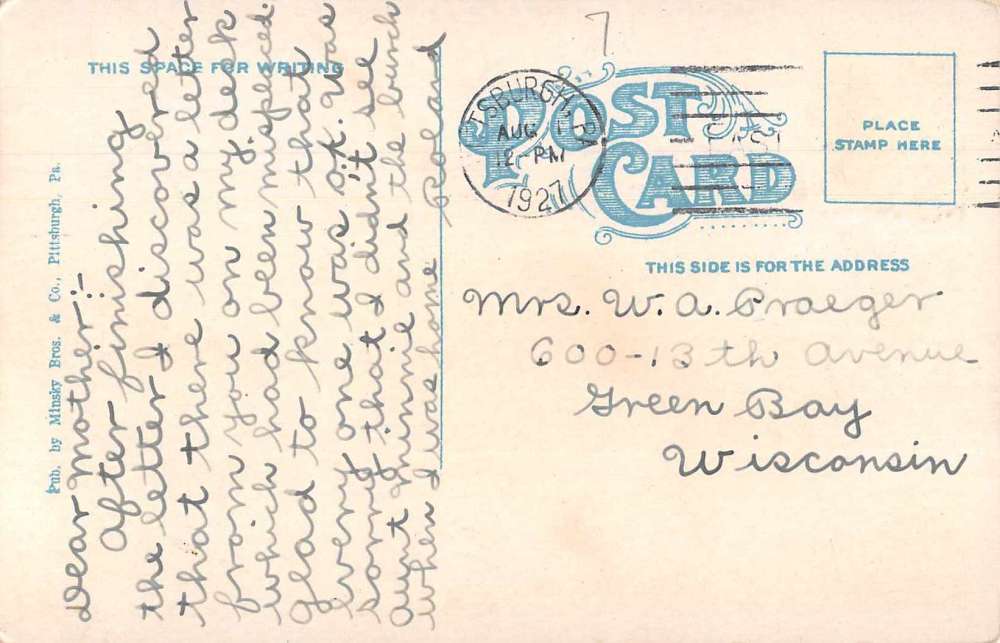 7
THIS SPACE FOR WRITING
POST CARD
PITTSBURGH, PA
AUG 1
12-PM
1927
PLACE
STAMP HERE
THIS SIDE IS FOR THE ADDRESS
Pub. by Minsky Bros. & Co., Pittsburgh, Pa.
Dear Mother:-
After finishing
the letter I discovered
that there was a letter
from you on my desk
which had been misplaced.
glad to know that
every one was O.K. Was
sorry that I didn't see
Aunt Minnie and the bunch
when I was home Roland
Mrs. W. A. Praeger
600-13th Avenue
Green Bay
Wisconsin